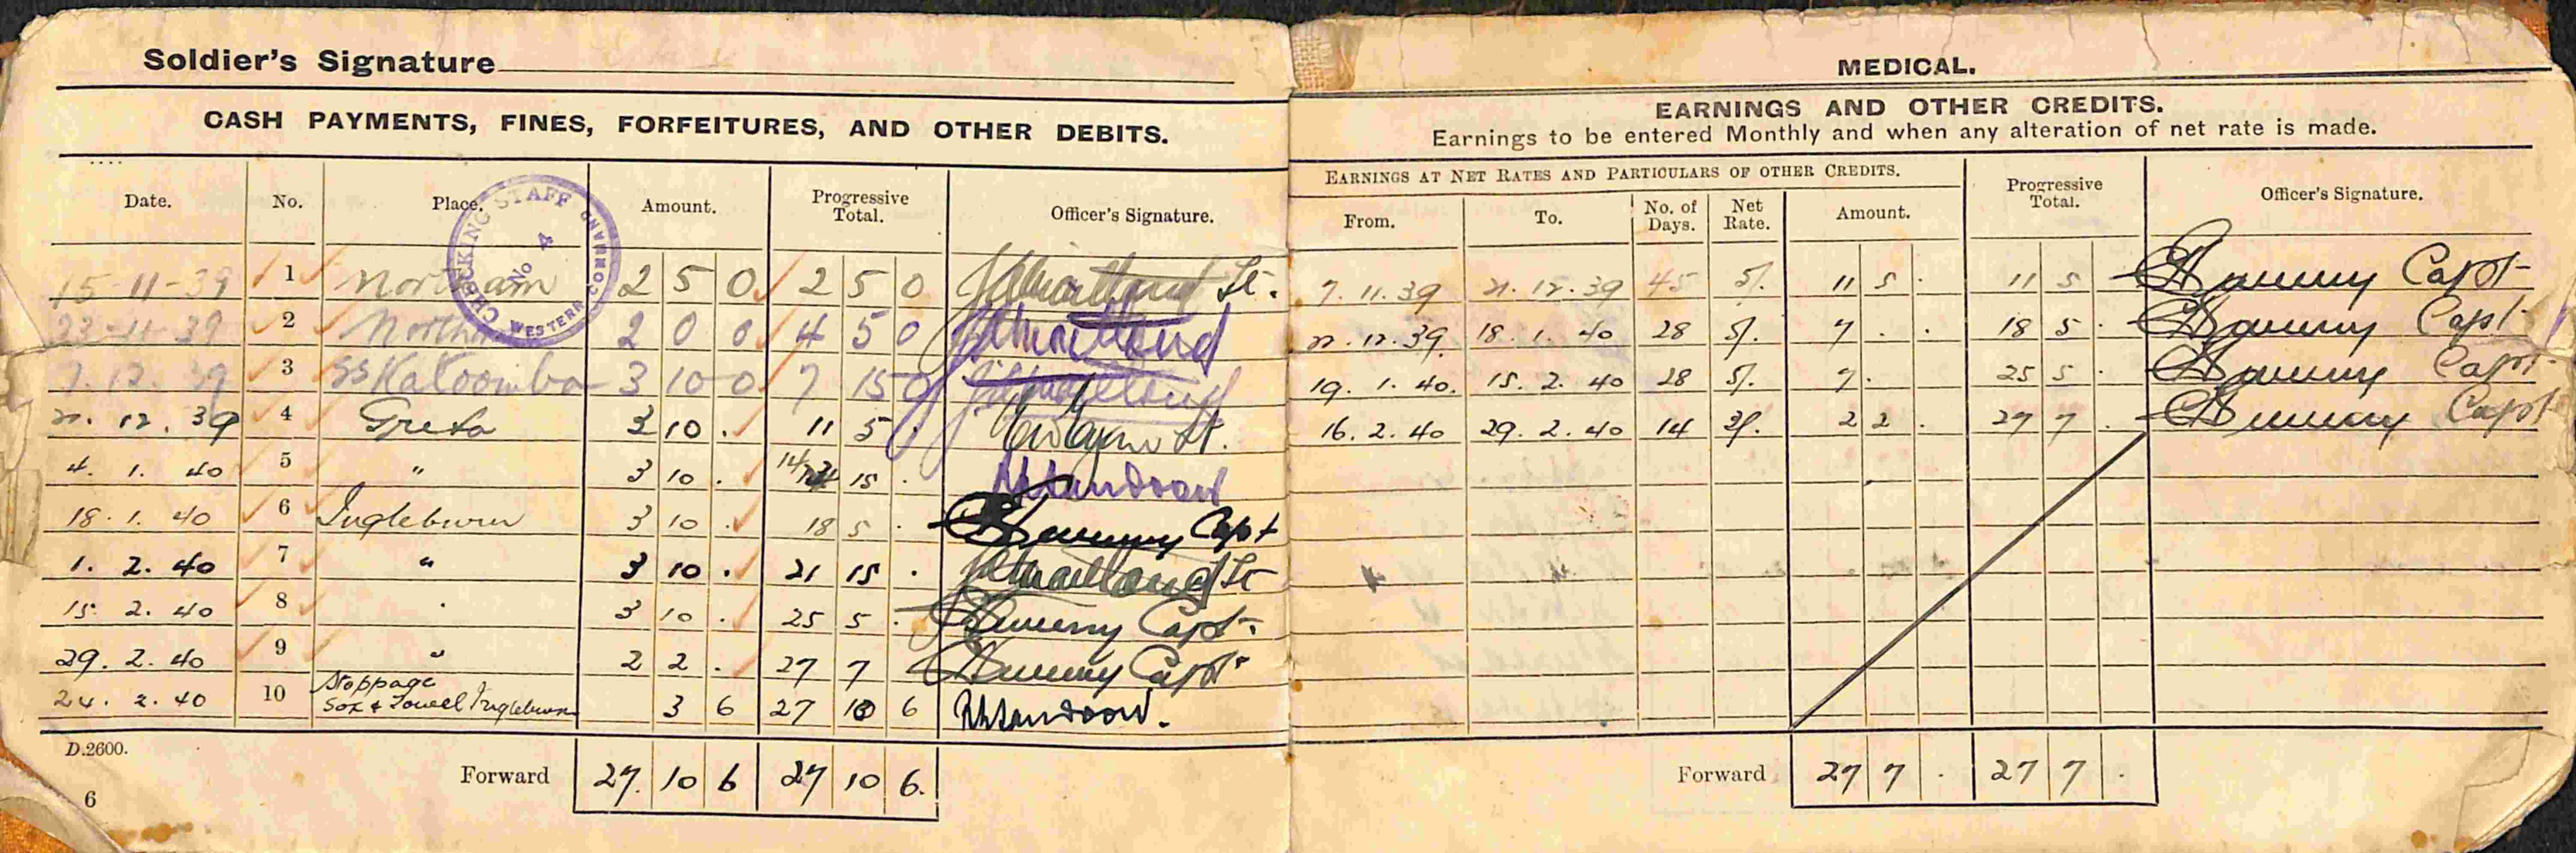 Soldier's Signature
CASH PAYMENTS, FINES, FORFEITURES, AND OTHER DEBITS.
Date. No. Place. Amount. Progressive Total. Officer's Signature.
CHECKING STAFF No 4 WESTERN COMMAND
15-11-39 1 Northam 2 5 0 2 5 0 Lt.
23-11-39 2 Northam 2 0 0 4 5 0
7.12.39 3 SS Katoomba 3 10 0 7 15 0
21.12.39 4 Greta 3 10 . 11 5 . Lt.
4.1.40 5 " 3 10 . 14 15 .
18.1.40 6 Ingleburn 3 10 . 18 5 . Capt
1.2.40 7 " 3 10 . 21 15 . Lt
15.2.40 8 . 3 10 . 25 5 . Capt.
29.2.40 9 " 2 2 . 27 7 Capt
24.2.40 10 Stoppage Sox & Towell Ingleburn 3 6 27 10 6
D.2600.
Forward 27 10 6 27 10 6.
6
MEDICAL.
EARNINGS AND OTHER CREDITS.
Earnings to be entered Monthly and when any alteration of net rate is made.
EARNINGS AT NET RATES AND PARTICULARS OF OTHER CREDITS. Progressive Total. Officer's Signature.
From. To. No. of Days. Net Rate. Amount.
7.11.39 21.12.39 45 5/. 11 5 . 11 5 Capt
22.12.39. 18.1.40 28 5/. 7 . . 18 5 . Capt
19.1.40. 15.2.40 28 5/. 7. 25 5 . Capt
16.2.40 29.2.40 14 3/. 2 2 . 27 7 . Capt
Forward 27 7 . 27 7 .